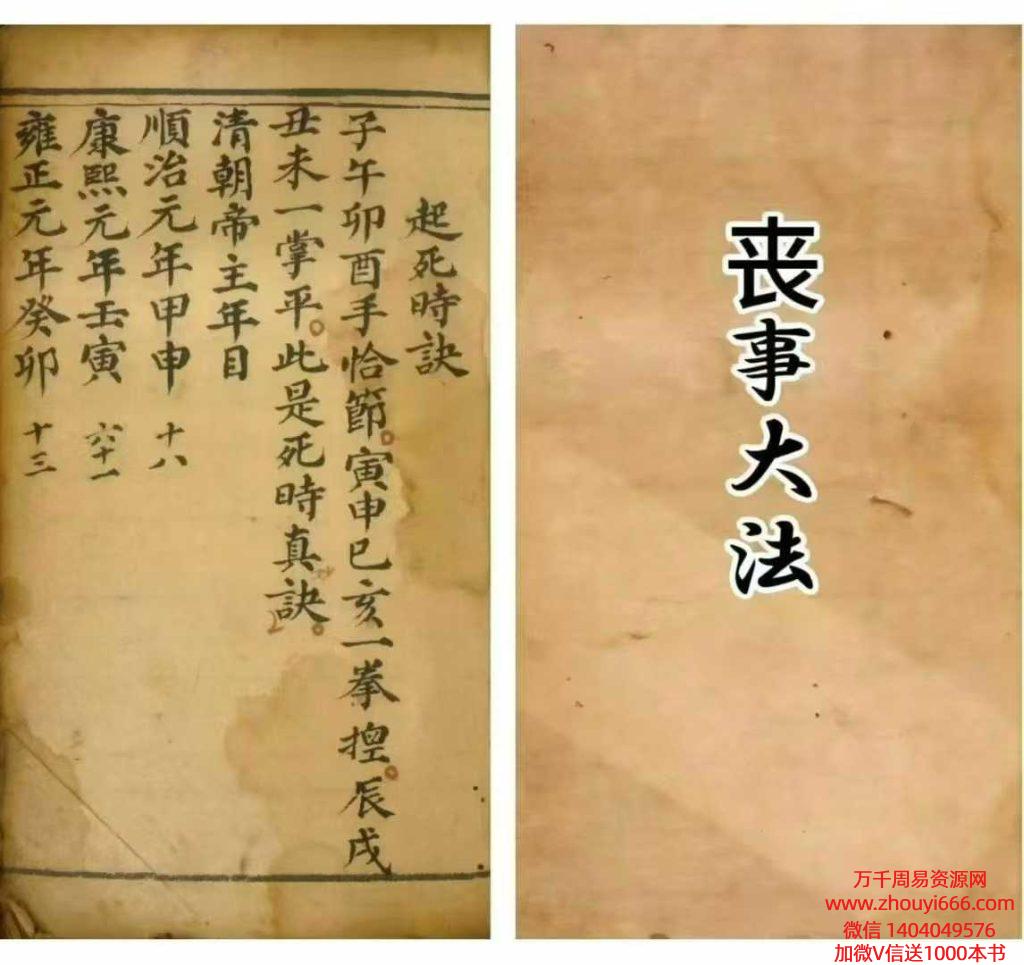 起死時訣
子午卯酉手恰節寅申巳亥一拳揑辰戌
丑未一掌平此是死時真訣
清朝帝主年目
順治元年甲申 十八
康熙元年壬寅 六十一
雍正元年癸卯 十三
丧事大法
万千周易资源网
www.zhouyi666.com
微信 1404049576
加微V信送1000本书